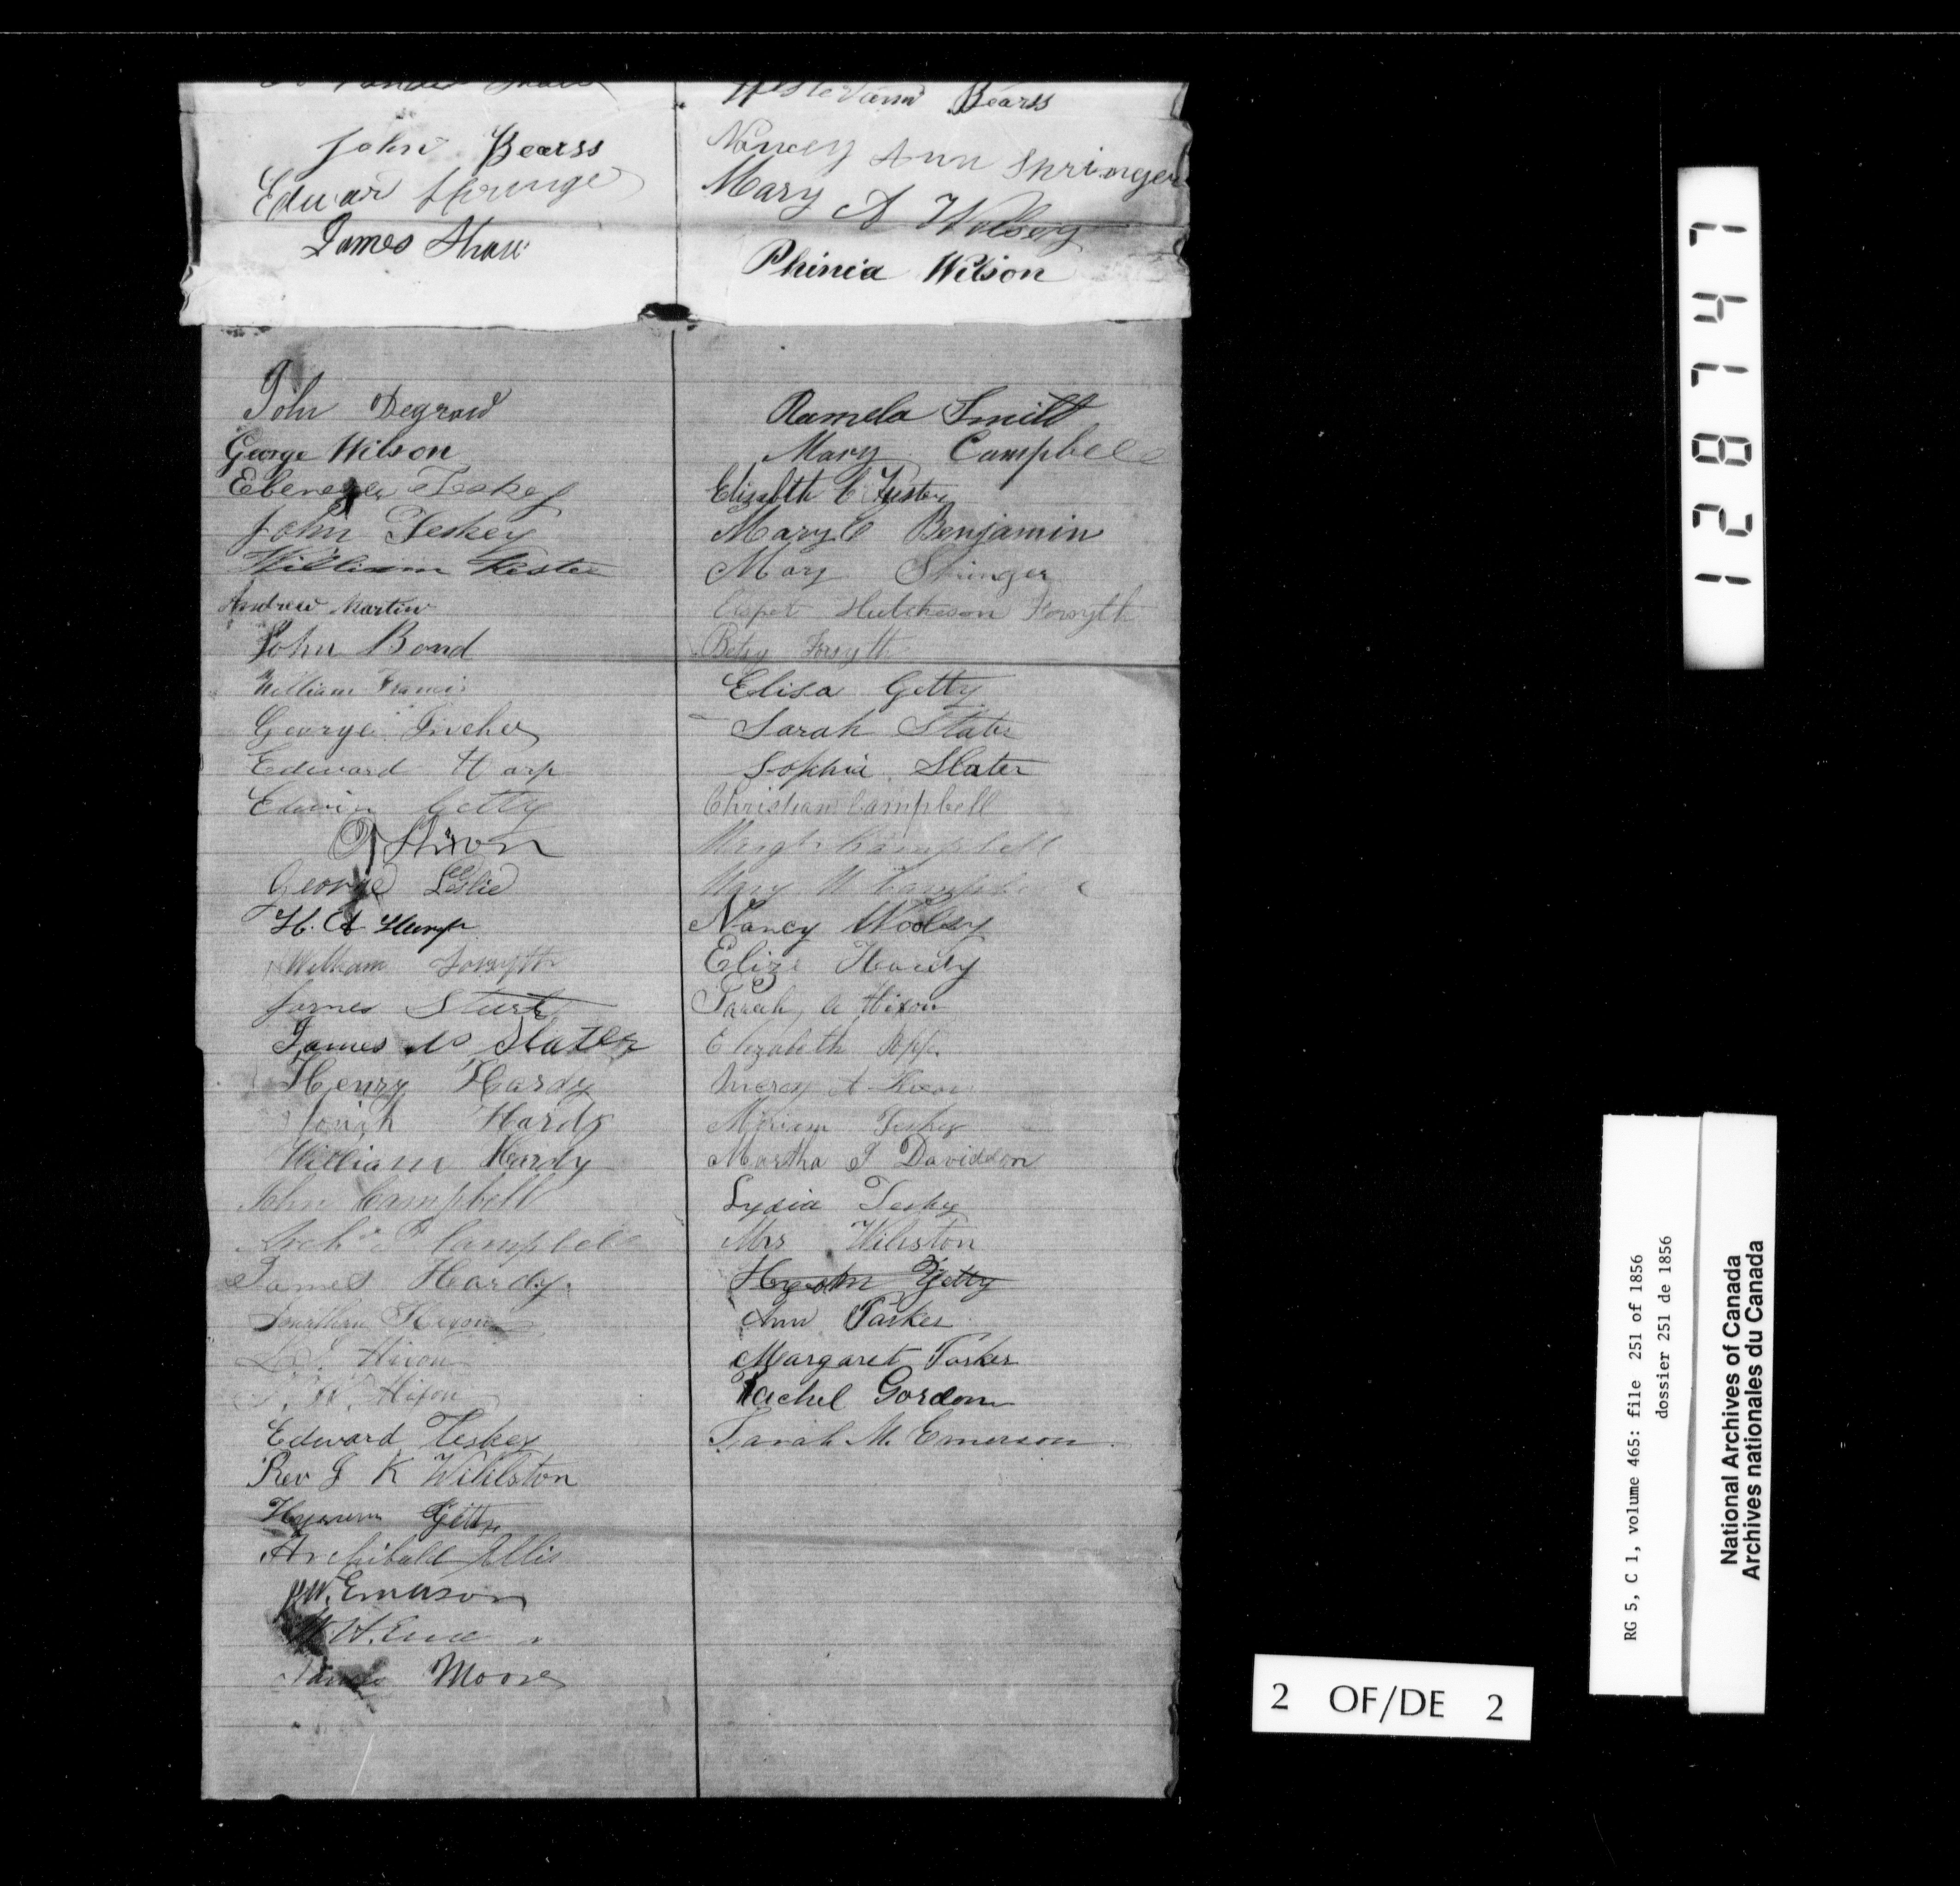 John Bearss
James Shaw
John Degraw
George Wilson
Ebenezer Teskey
John Teskey
William
Andrew Martin
John Bond
William Francis
George
Edward Harp
Edwin Getty
George Leslie
H. A.
William Forsyth
James
James Slater
Henry Hardy
Josiah Hardy
William Hardy
John Campbell
Archd P Campbell
James Hardy
Jonathan Hixon
Hixon
W. Hixon
Edward Teskey
Rev J K Williston
Getty
Archibald Ellis
W. Emerson
James Moore
Bearss
Nancy Ann Springer
Mary A Wolsey
Phinia Wilson
Pamela Smith
Mary Campbell
Elizabeth C
Mary C Benjamin
Mary Springer
Hutcheson Forsyth
Betsy Forsyth
Elisa Getty
Sarah Slater
Sophia Slater
Christian Campbell
Campbell
Mary M Campbell
Nancy Woolsy
Eliza Hardy
Sarah A Hixon
Elizabeth
Mercy A
Miriam Teskey
Martha J Davidson
Lydia Teskey
Mrs Wiliston
Getty
Ann Parker
Margaret Parker
Rachel Gordon
Sarah M. Emerson
128747
RG 5, C 1, volume 465: file 251 of 1856
dossier 251 de 1856
National Archives of Canada
Archives nationales du Canada
2 OF/DE 2